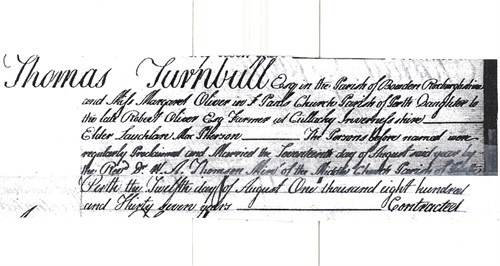 Thomas Turnbull Esq in the Parish of Bowden Roxburghshire
and Miss Margaret Oliver in St Pauls Church Parish of Perth Daughter to
the late Robert Oliver Esq Farmer at Culachy Inverness shire
Elder Lauchlan McPherson The Persons before named were
regularly Proclaimed and Married the Seventeenth day of August said year by
the Revd Dr W. A. Thomson Minr of the Middle Church Parish of
Perth the Twelfth day of August One thousand eight hundred
and Thirty seven years Contracted